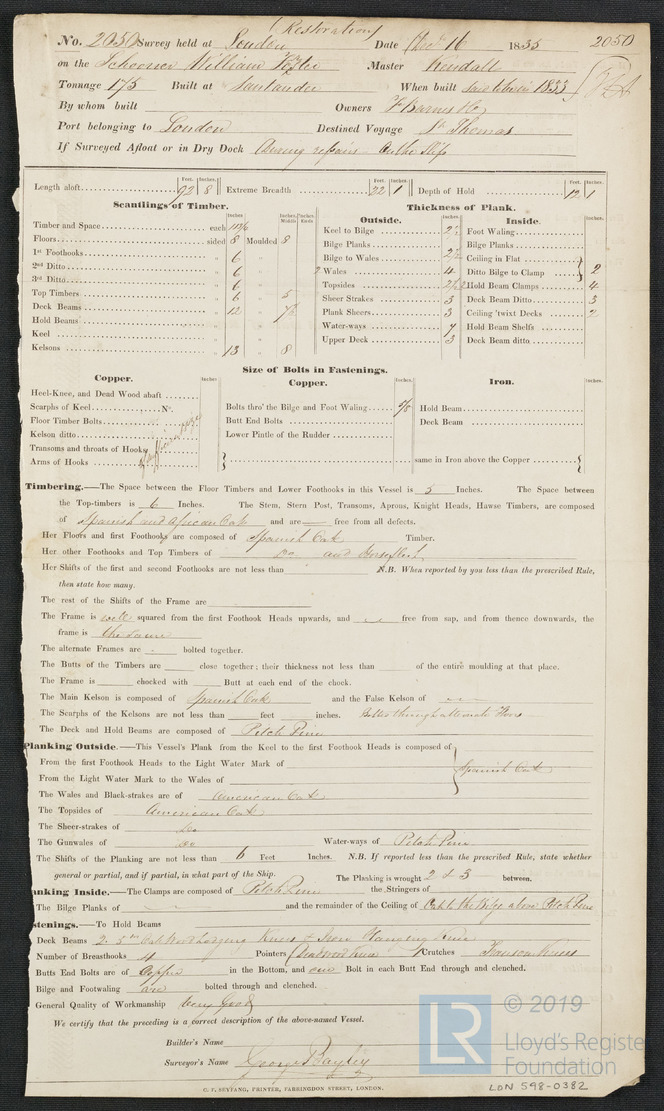 (Restoration)
No. 2050 Survey held at London Date Decr 16 1835 2050
on the Schooner William Master Kendall
Tonnage 175 Built at Santander When built 1833
By whom built Owners F Barnes & Co
Port belonging to London Destined Voyage St Thomas
If Surveyed Afloat or in Dry Dock During repairs on the Slip
Length aloft 92 8 Extreme Breadth 22 1 Depth of Hold 12 1
Feet. Inches. Feet. Inches. Feet. Inches.
Scantlings of Timber.
Inches Inches. Mould. Inches Ends
Timber and Space each
Floors sided 8 Moulded 8
1st Foothooks " 6 "
2nd Ditto " 6 "
3rd Ditto " 6 "
Top Timbers " 6 " 5
Deck Beams " 12 "
Hold Beams " "
Keel " "
Kelsons " 13 " 8
Thickness of Plank.
Outside. Inches.
Keel to Bilge
Bilge Planks
Bilge to Wales
Wales 4
Topsides
Sheer Strakes 3
Plank Sheers 3
Water-ways 7
Upper Deck 3
Inside. Inches.
Foot Waling
Bilge Planks
Ceiling in Flat
Ditto Bilge to Clamp 2
Hold Beam Clamps 4
Deck Beam Ditto 3
Ceiling 'twixt Decks 2
Hold Beam Shelfs
Deck Beam ditto
Size of Bolts in Fastenings.
Copper. Inches.
Heel-Knee, and Dead Wood abaft
Scarphs of Keel No.
Floor Timber Bolts
Kelson ditto
Transoms and throats of Hooks
Arms of Hooks
Copper. Inches.
Bolts thro' the Bilge and Foot Waling 5/8
Butt End Bolts
Lower Pintle of the Rudder
Iron. Inches.
Hold Beam
Deck Beam
same in Iron above the Copper
Timbering.—The Space between the Floor Timbers and Lower Foothooks in this Vessel is 5 Inches. The Space between
the Top-timbers is 6 Inches. The Stem, Stern Post, Transoms, Aprons, Knight Heads, Hawse Timbers, are composed
of Spanish and African Oak and are — free from all defects.
Her Floors and first Foothooks are composed of Spanish Oak Timber.
Her other Foothooks and Top Timbers of Do and
Her Shifts of the first and second Foothooks are not less than N.B. When reported by you less than the prescribed Rule,
then state how many.
The rest of the Shifts of the Frame are
The Frame is well squared from the first Foothook Heads upwards, and — free from sap, and from thence downwards, the
frame is the same
The alternate Frames are - bolted together.
The Butts of the Timbers are close together; their thickness not less than of the entire moulding at that place.
The Frame is chocked with Butt at each end of the chock.
The Main Kelson is composed of Spanish Oak and the False Kelson of —
The Scarphs of the Kelsons are not less than feet inches. Bolts through alternate Floors
The Deck and Hold Beams are composed of Pitch Pine
Planking Outside.—This Vessel's Plank from the Keel to the first Foothook Heads is composed of
From the first Foothook Heads to the Light Water Mark of Spanish Oak
From the Light Water Mark to the Wales of
The Wales and Black-strakes are of American Oak
The Topsides of American Oak
The Sheer-strakes of Do
The Gunwales of Do Water-ways of Pitch Pine
The Shifts of the Planking are not less than 6 Feet Inches. N.B. If reported less than the prescribed Rule, state whether
general or partial, and if partial, in what part of the Ship. The Planking is wrought 2 & 3 between.
anking Inside.—The Clamps are composed of Pitch Pine the Stringers of
The Bilge Planks of and the remainder of the Ceiling of Oak to the Bilge above Pitch Pine
stenings.—To Hold Beams
Deck Beams 2 Oak Wood Lodging Knees & Iron Hanging Knees
Number of Breasthooks 4 Pointers Crutches Transom Knees
Butts End Bolts are of Copper in the Bottom, and one Bolt in each Butt End through and clenched.
Bilge and Footwaling are bolted through and clenched.
General Quality of Workmanship Very good
We certify that the preceding is a correct description of the above-named Vessel.
Builder's Name
Surveyor's Name George Bayley
C. F. SEYFANG, PRINTER, FARRINGDON STREET, LONDON.
LR © 2019
Lloyd's Registe
Foundation
LON 598-0382